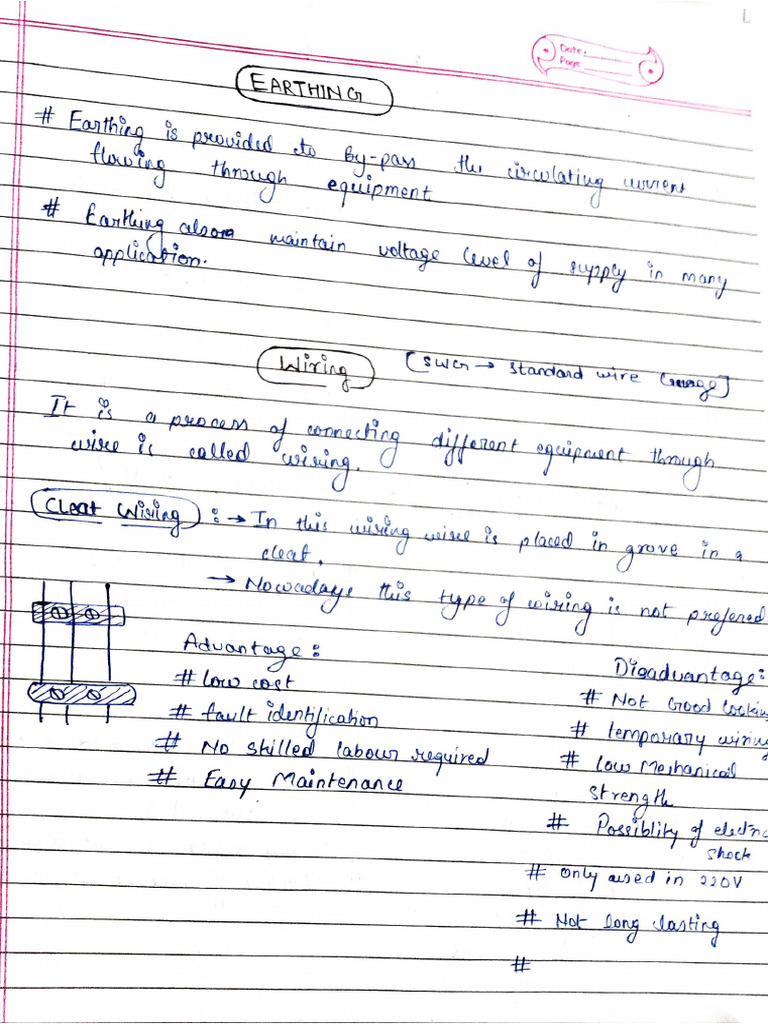 Date:
Page
EARTHING
# Earthing is provided to By-pass the circulating current
flowing through equipment
# Earthing also maintain voltage level of supply in many
application.
Wiring [SWG → Standard wire Gauge]
It is a process of connecting different equipment through
wire is called wiring.
Cleat Wiring : → In this wiring wire is placed in grove in a
cleat.
→ Nowadays this type of wiring is not prefered
Advantage:
# low cost
# fault identification
# No skilled labour required
# Easy Maintenance
Disadvantage:
# Not Good looking
# temporary wiring
# low Mechanical
Strength
# Possiblity of electric
shock
# only used in 220V
# Not long lasting
#